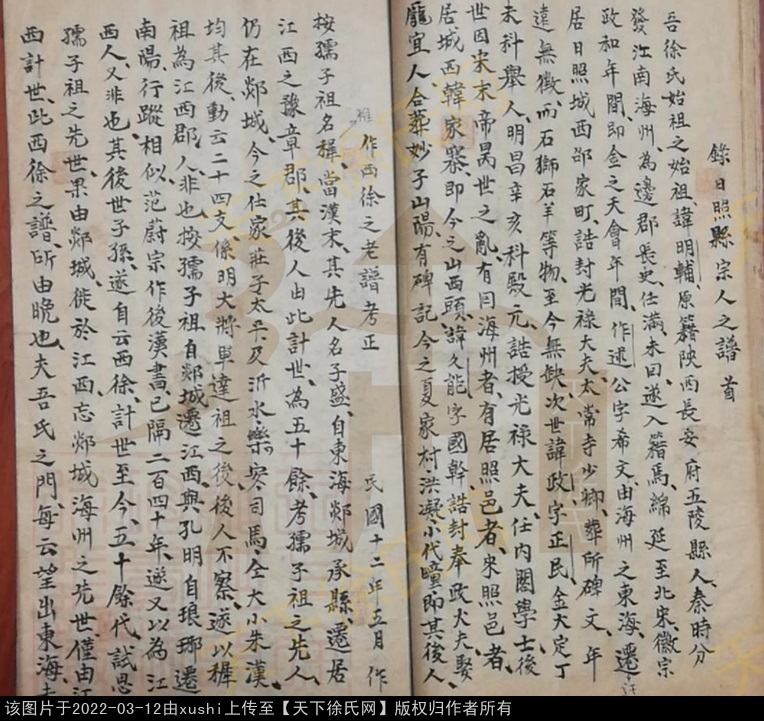 錄日照縣宗人之譜首
吾徐氏始祖之始祖諱明輔原籍陝西長安府五陵縣人秦時分
發江南海州為邊郡長史任滿未回遂入籍馬綿延至北宋徽宗
政和年間即金之天會年間作述公字希文由海州之東海遷
居日照城西邵家町誥封光祿大夫太常寺少卿葬所碑文年
遠無徵而石獅石羊等物至今無缺次世諱政字正民金大定丁
未科舉人明昌辛亥科殿元誥授光祿大夫任內閣學士後
世因宋末帝昺世之亂有回海州者有居照邑者來照邑者
居城西韓家寨即今之山西頭諱久能字國幹誥封奉政大夫娶
龐宜人合葬妙子山陽有碑記今之夏家村洪凝小代疃即其後人
作西徐之老譜考正
民國十二年五月作
按孺子祖名穉當漢末其先人名子盛自東海郯城承縣遷居
江西之豫章郡其後人由此計世為五十餘考孺子祖之先人
仍在郯城今之仕家莊子太平及沂水樂安司馬仝大小朱漢
均其後動云二十四支係明大將軍達祖之後後人不察遂以穉
祖為江西郡人非也按孺子祖自郯城遷江西與孔明自琅琊遷
南陽行蹤相似范蔚宗作後漢書已隔二百四十年遂又以為江
西人又非也其後世子孫遂自云西徐計世至今五十餘代試思
孺子祖之先世果由郯城徙於江西忘郯城海州之先世僅由江
西計世此西徐之譜所由晚也夫吾氏之門每云望出東海
该图片于2022-03-12由xushi上传至【天下徐氏网】版权归作者所有